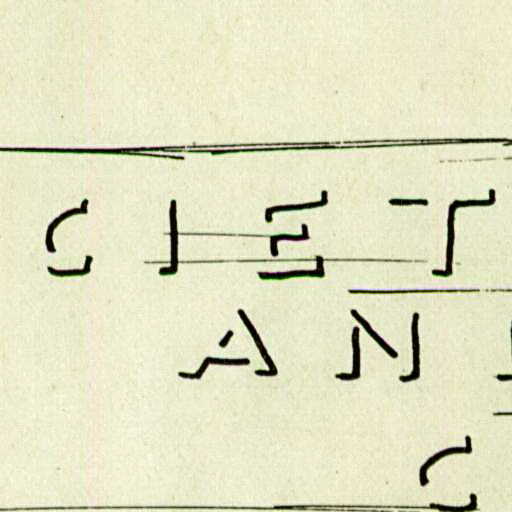 CIET
AN
C